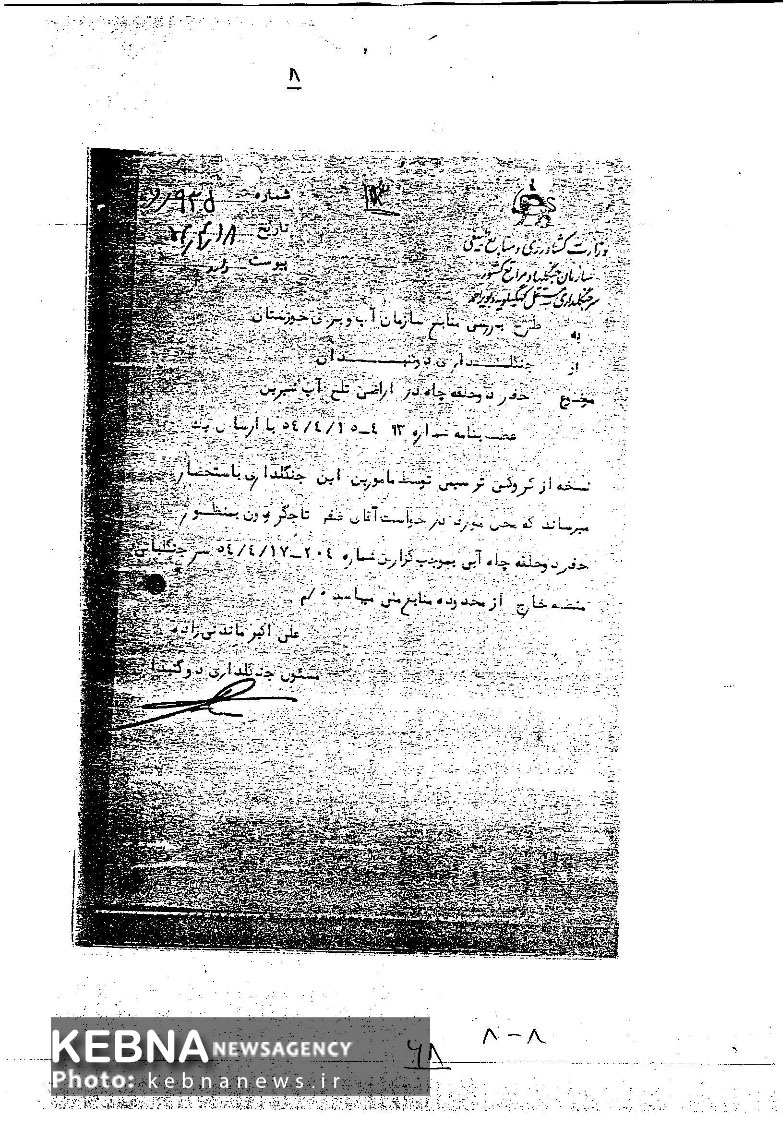 ۸
شماره ۹۳۵
تاریخ ۵۴/۴/۱۸
پیوست دارد
وزارت کشاورزی و منابع طبیعی
سازمان جنگلها و مراتع کشور
سرجنگلداری مستقل کهگیلویه و بویراحمد
به طرح بررسی منابع سازمان آب و برق خوزستان
از جنگلداری دوگنبدان
موضوع حفر دو حلقه چاه در اراضی تلخ آب شیرین
عطف بنامه شماره ۵۴/۴/۱۵ با ارسال یک
نسخه از کروکی ترسیمی توسط مامورین این جنگلداری باستحضار
میرساند که محل مورد درخواست آقای تاجگردون بمنظور
حفر دو حلقه چاه آبی بموجب گزارش شماره ۲۰۴-۵۴/۴/۱۷ سرجنگلبانی
منطقه خارج از محدوده منابع ملی میباشد م/
علی اکبر
مسئول جنگلداری دوگنبدان
۸-۸
۶۸
KEBNA NEWSAGENCY
Photo: kebnanews.ir